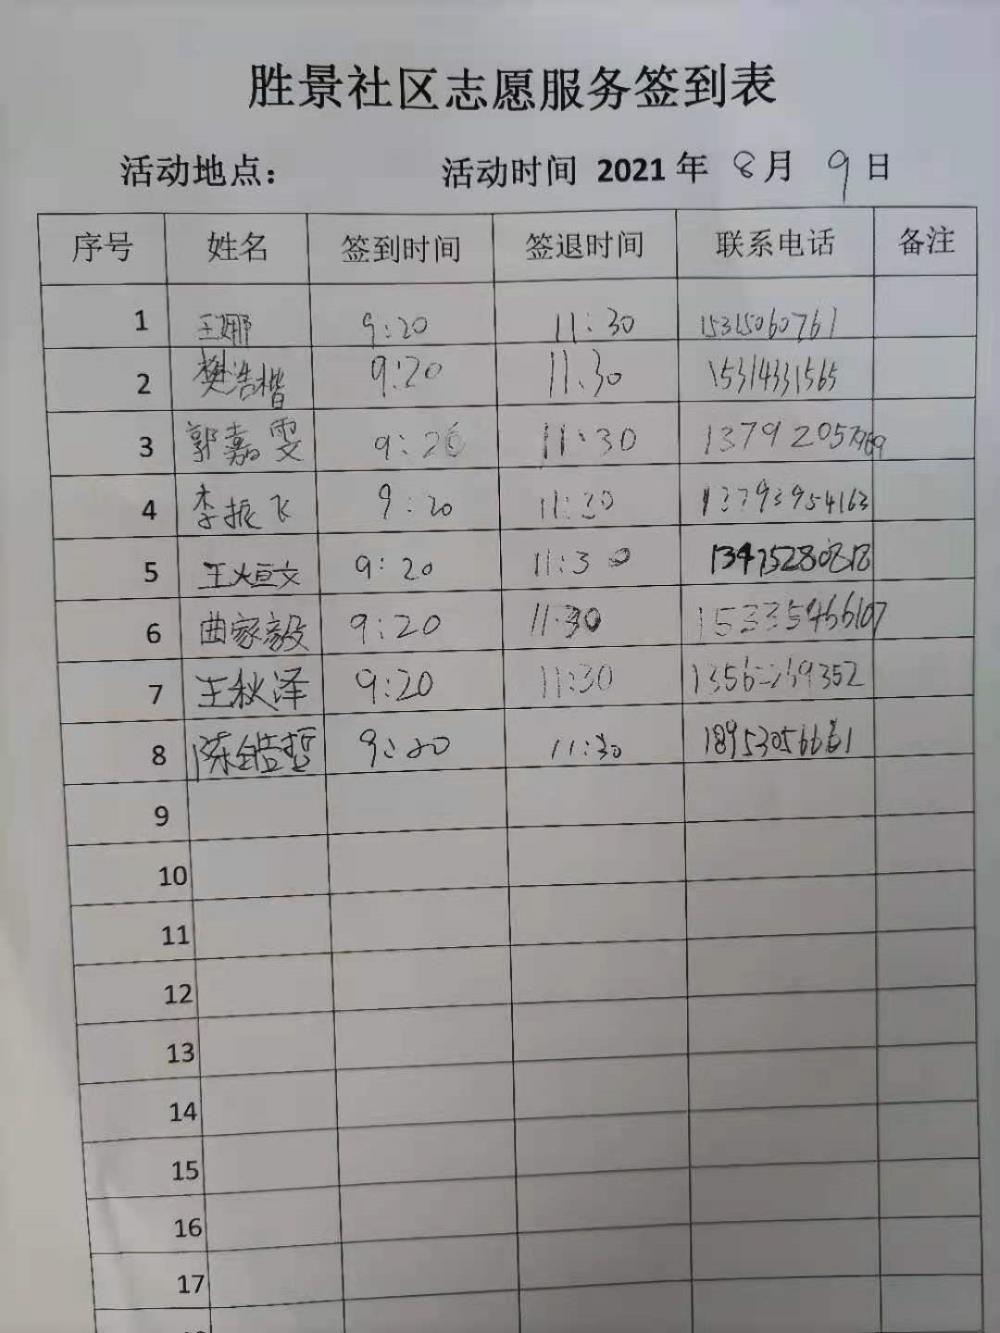 胜景社区志愿服务签到表
活动地点： 活动时间 2021 年 8 月 9 日
序号 姓名 签到时间 签退时间 联系电话 备注
1 王娜 9:20 11:30 15315060761
2 樊浩楷 9:20 11:30 15314331565
3 郭嘉雯 9:20 11:30
4 李振飞 9:20 11:30 13793954163
5 王烜文 9:20 11:30
6 曲家毅 9:20 11:30 15335466107
7 王秋泽 9:20 11:30
8 陈皓哲 9:20 11:30
9
10
11
12
13
14
15
16
17